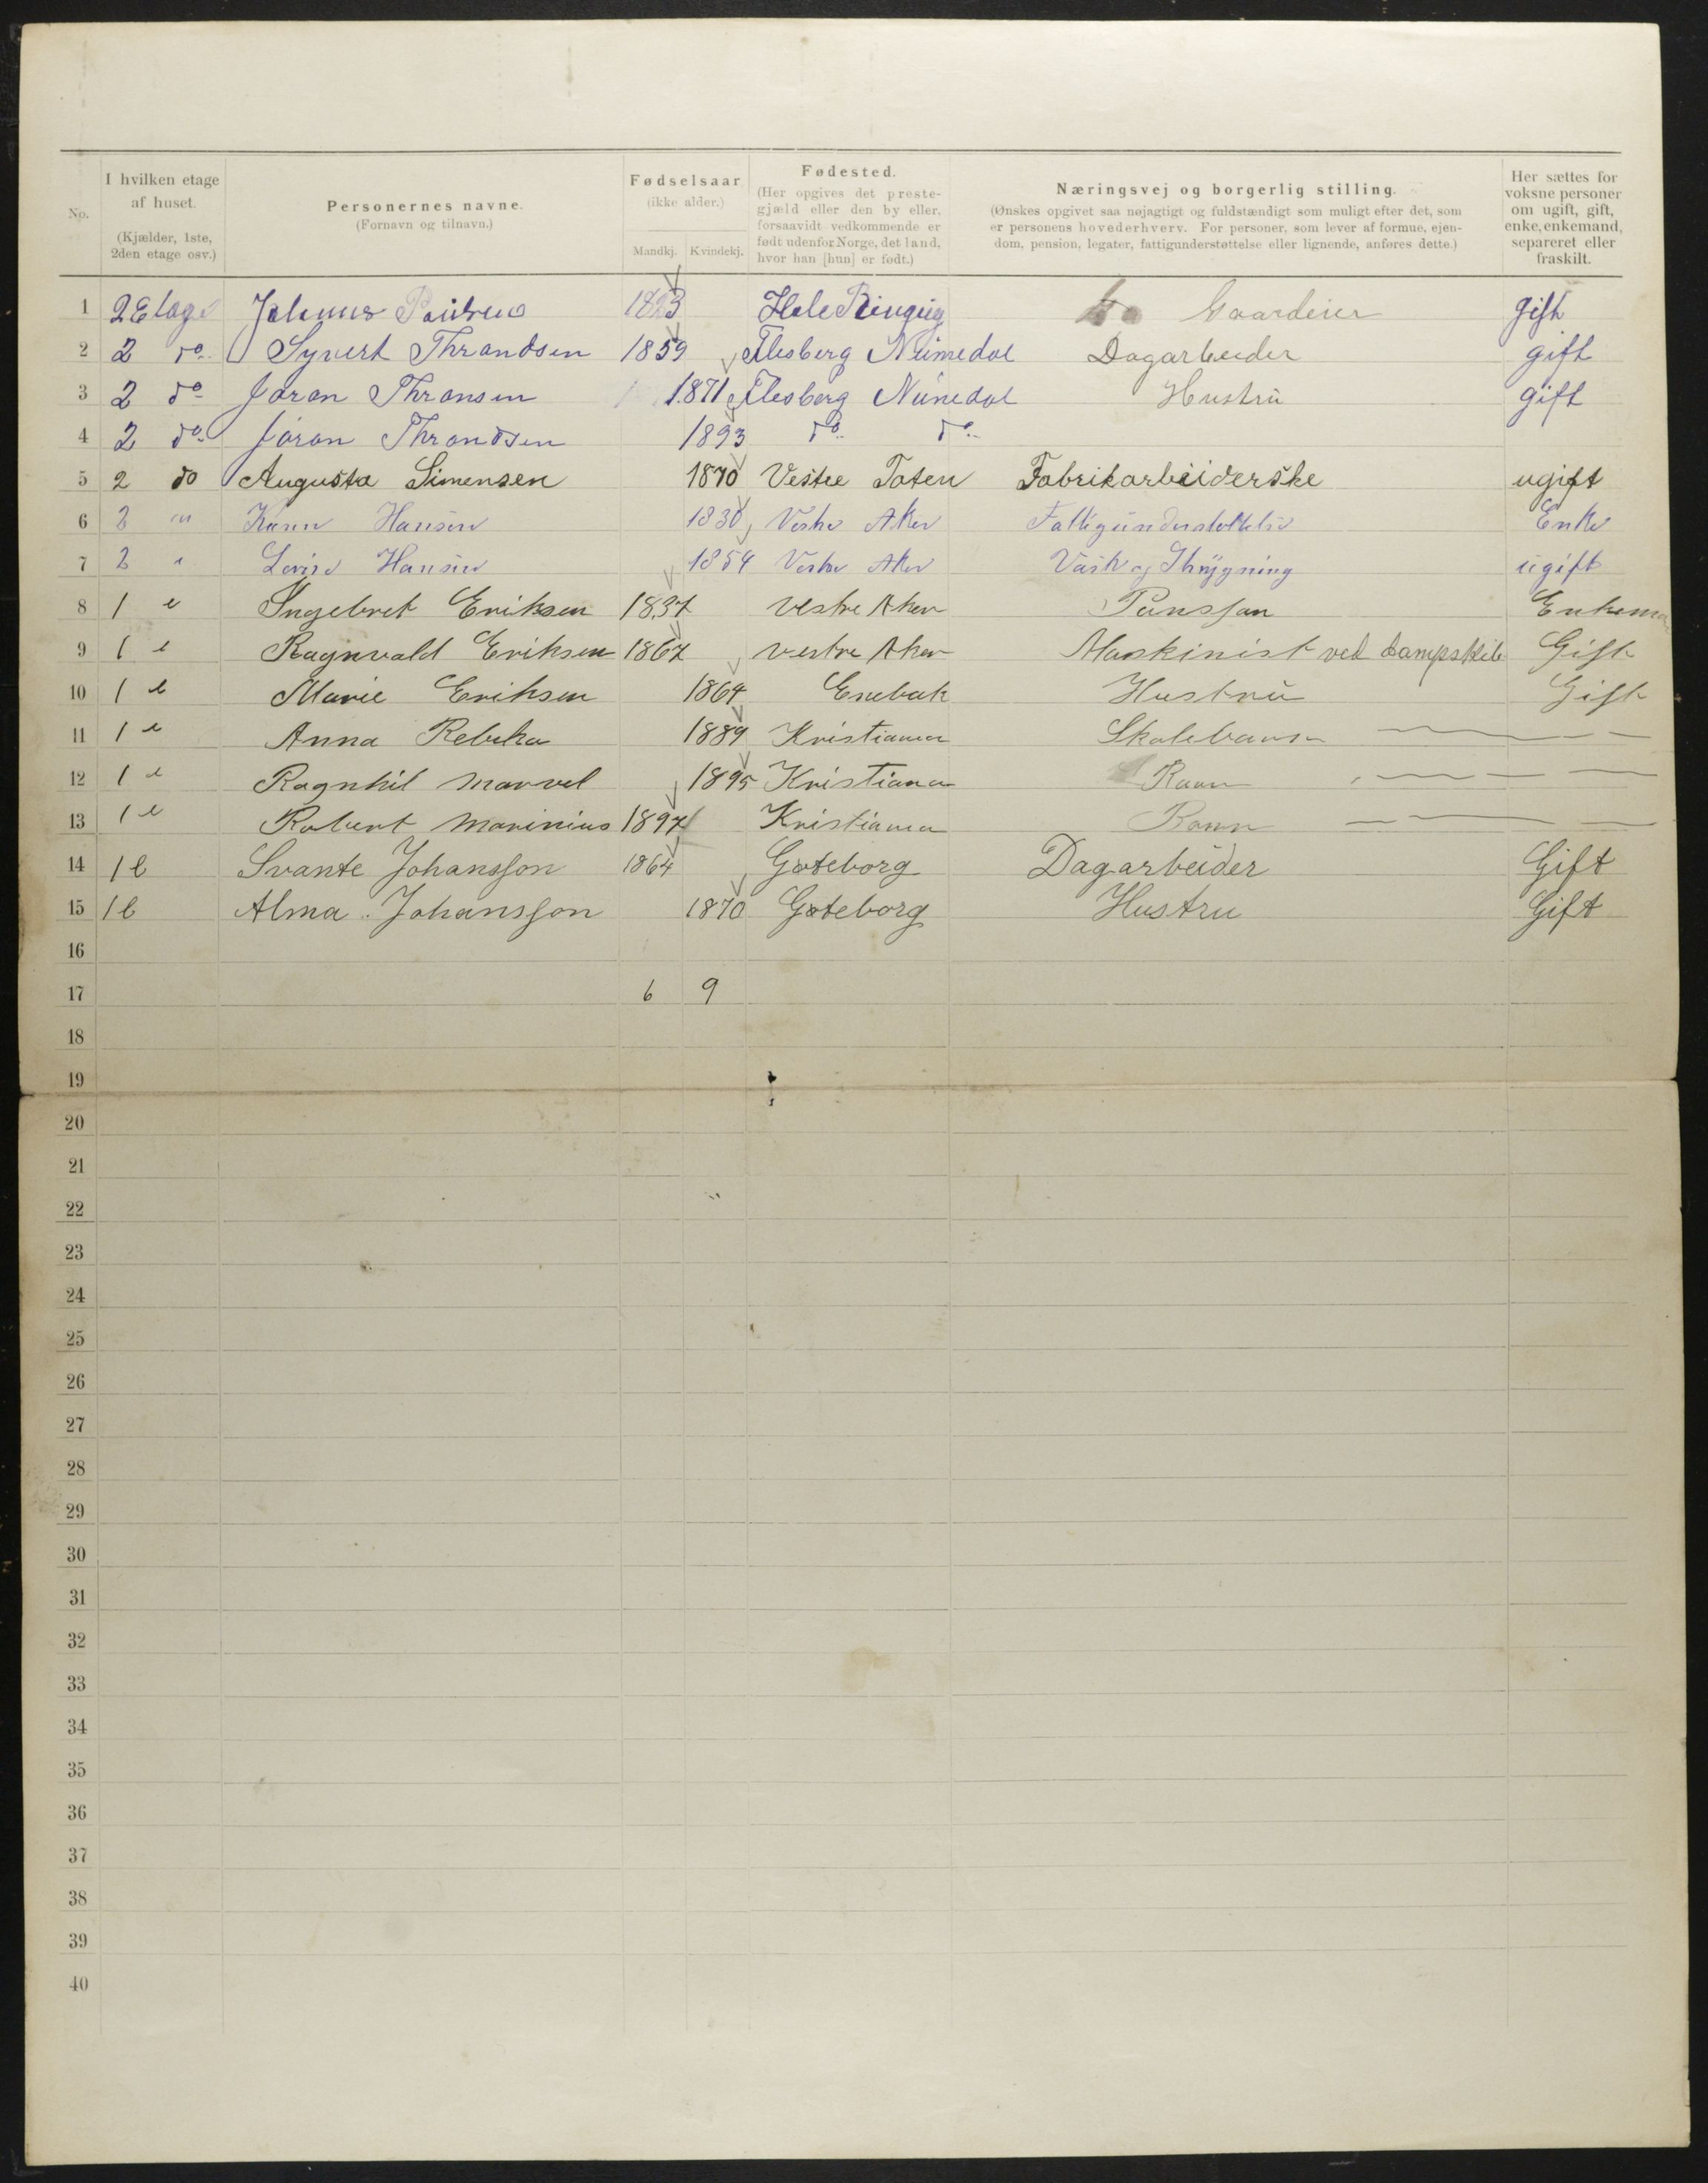 No.
I hvilken etage af huset.
(Kjælder, 1ste, 2den etage osv.)
Personernes navne.
(Fornavn og tilnavn.)
Fødselsaar
(ikke alder.)
Mandkj. Kvindekj.
Fødested.
(Her opgives det prestegjæld eller den by eller, forsaavidt vedkommende er født udenfor Norge, det land, hvor han [hun] er født.)
Næringsvej og borgerlig stilling.
(Ønskes opgivet saa nøjagtigt og fuldstændigt som muligt efter det, som er personens hovederhverv. For personer, som lever af formue, ejendom, pension, legater, fattigunderstøttelse eller lignende, anføres dette.)
Her sættes for voksne personer om ugift, gift, enke, enkemand, separeret eller fraskilt.
1 2 Etage 1823 Hole Gaardeier gift
2 2 do Syvert Thrandsen 1859 Flesberg Numedal Dagarbeider gift
3 2 do Jøran Thransen 1871 Flesberg Numedal Hustrü gift
4 2 do Jøran Thrandsen 1893 do do
5 2 do Augusta Simensen 1870 Vestre Toten Fabrikarbeiderske ugift
6 2 " Karen Hansen 1830 Vestre Aker Enke
7 2 " Hansen 1854 Vestre Aker Vask og Strygning ugift
8 1 e Ingebret Eriksen 1837 Vestre Aker Pansjon
9 1 e Ragnvald Eriksen 1867 Vestre Aker Maskinist ved dampskib Gift
10 1 e Marie Eriksen 1864 Enebak Hustru Gift
11 1 e Anna Rebeka 1889 Kristiania Skolebarn
12 1 e Ragnhil Marvel 1895 Kristiana Barn
13 1 e Robert Marinius 1897 Kristiania Barn
14 1 e Svante Johansson 1864 Gøteborg Dagarbeider Gift
15 1 e Alma Johansson 1870 Gøteborg Hustru Gift
16
17 6 9
18
19
20
21
22
23
24
25
26
27
28
29
30
31
32
33
34
35
36
37
38
39
40